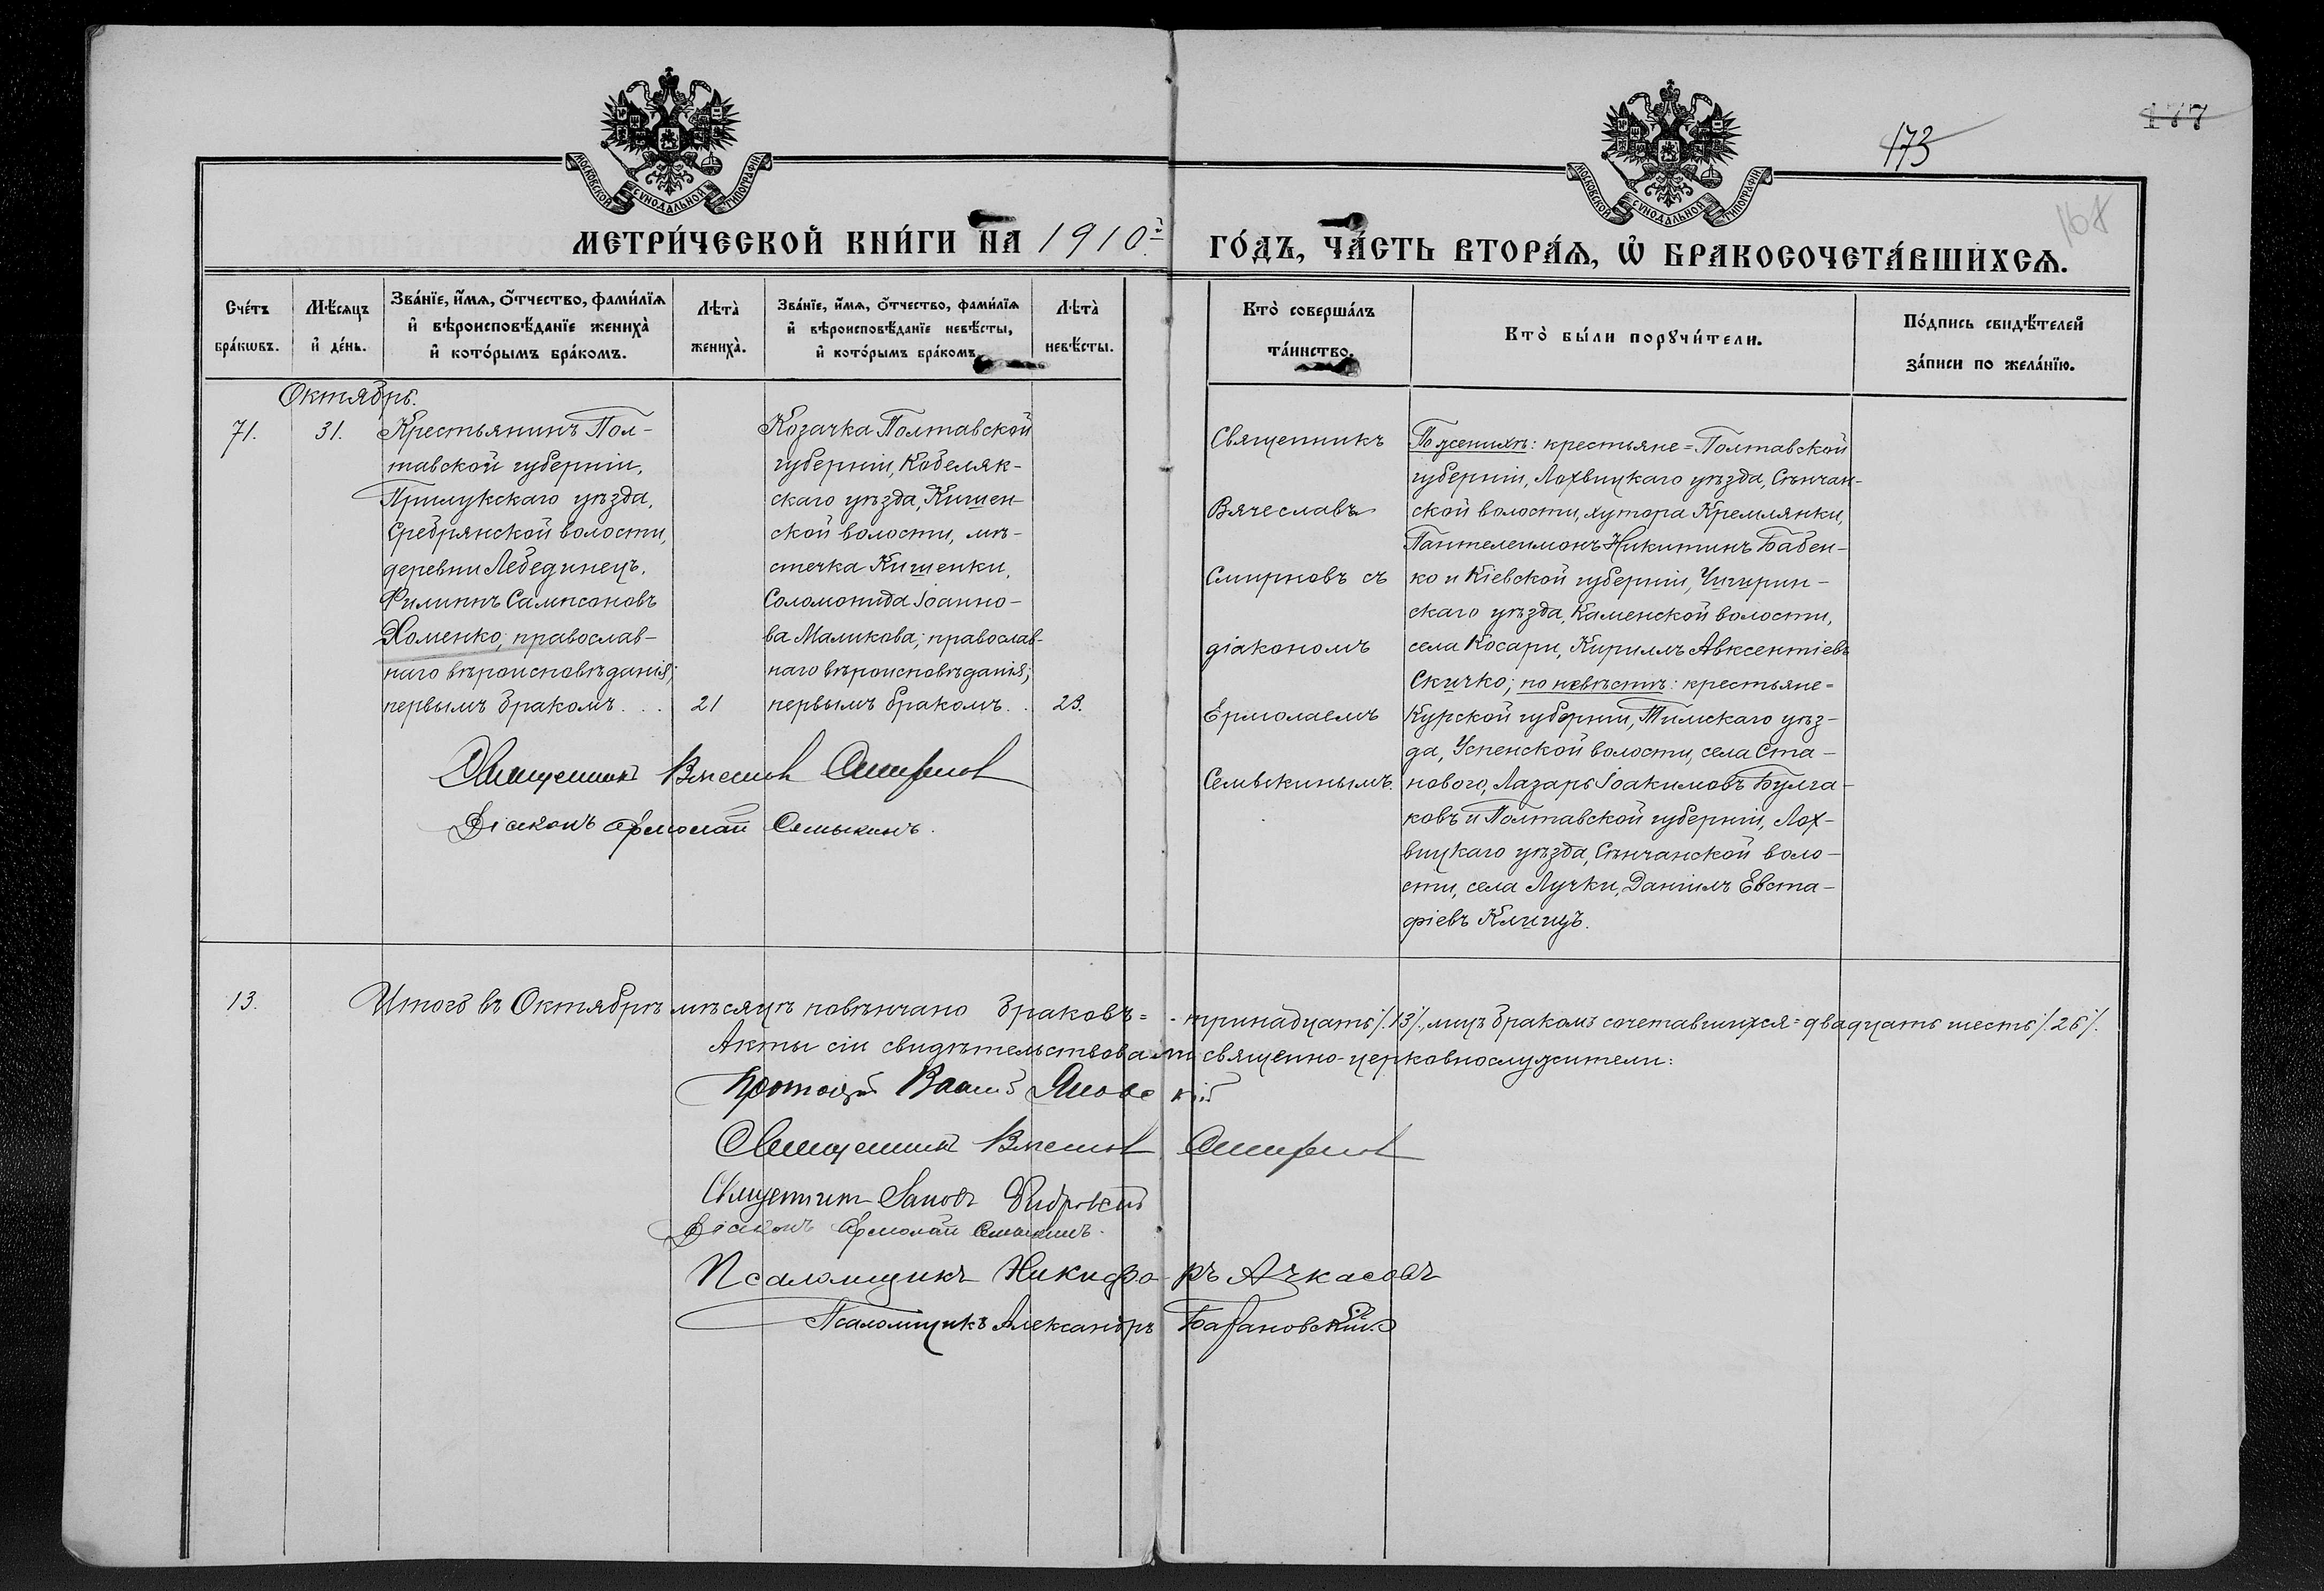 177
173
168
МОСКОВСКОЙ СѴНОДАЛЬНОЙ ТИПОГРАФІИ
МОСКОВСКОЙ СѴНОДАЛЬНОЙ ТИПОГРАФІИ
МЕТРИ́ЧЕСКОЙ КНИ́ГИ НА 1910й
ГО́ДЪ, ЧА́СТЬ ВТОРА́Ѧ, Ѽ БРАКОСОЧЕТА́ВШИХСѦ.
Сче́тъ
бра́кѡвъ.
Мѣ́сяцъ
и де́нь.
Зва́нїе, и́мѧ, ѻ́тчество, фами́лїѧ
и҆ вѣроисповѣ́данїе жениха̀
и҆ кото́рымъ бра́комъ.
Лѣта̀
жениха̀.
Зва́нїе, и́мѧ, ѻ́тчество, фами́лїѧ
и҆ вѣроисповѣ́данїе невѣ́сты,
и҆ кото́рымъ бра́комъ.
Лѣта̀
невѣ́сты.
Кто̀ соверша́лъ
та́инство.
Кто̀ бы́ли порꙋчи́тели.
По́дпись свидѣ́телей
за́писи по жела́нїю.
Октябрь.
71.
31.
Крестьянинъ Пол-
тавской губерніи,
Прилукскаго уѣзда,
Сребрянской волости,
деревни Лебединецъ,
Филиппъ Сампсоновъ
Хоменко; православ-
наго вѣроисповѣданія;
первымъ бракомъ . . .
21
Козачка Полтавской
губерніи, Кобеляк-
скаго уѣзда, Кишен-
ской волости, мѣ-
стечка Кишенки,
Соломонида Іоанно-
ва Маликова; православ-
наго вѣроисповѣданія;
первымъ бракомъ . .
23.
Священникъ Вячеславъ Смирновъ
Діаконъ Ермолай Семыкинъ.
Священникъ
Вячеславъ
Смирновъ съ
діакономъ
Ермолаемъ
Семыкинымъ.
По женихѣ: крестьяне = Полтавской
губерніи, Лохвицкаго уѣзда, Сѣнчан-
ской волости, хутора Кремлянки,
Пантелеимонъ Никитинъ Бабен-
ко и Кіевской губерніи, Чигирин-
скаго уѣзда, Каменской волости,
села Косари, Кириллъ Авксентіевъ
Скичко; по невѣстѣ: крестьяне =
Курской губерніи, Тимскаго уѣз-
да, Успенской волости, села Ста-
новаго, Лазарь Іоакимовъ Булга-
ковъ и Полтавской губерніи, Лох-
вицкаго уѣзда, Сѣнчанской воло-
сти, села Лучки, Даніилъ Евста-
фіевъ Клищъ.
13.
Итого въ Октябрѣ мѣсяцѣ повѣнчано браковъ = - тринадцать /.13/., лицъ бракомъ сочетавшихся = двадцать шесть /.26/.
Акты сіи свидѣтельствовали священно-церковнослужители:
Протоіерей Яновскій
Священникъ Вячеславъ Смирновъ
Священникъ
Діаконъ Ермолай Семыкинъ.
Псаломщикъ Никифоръ Ачкасовъ
Псаломщикъ Александръ Барановскій.